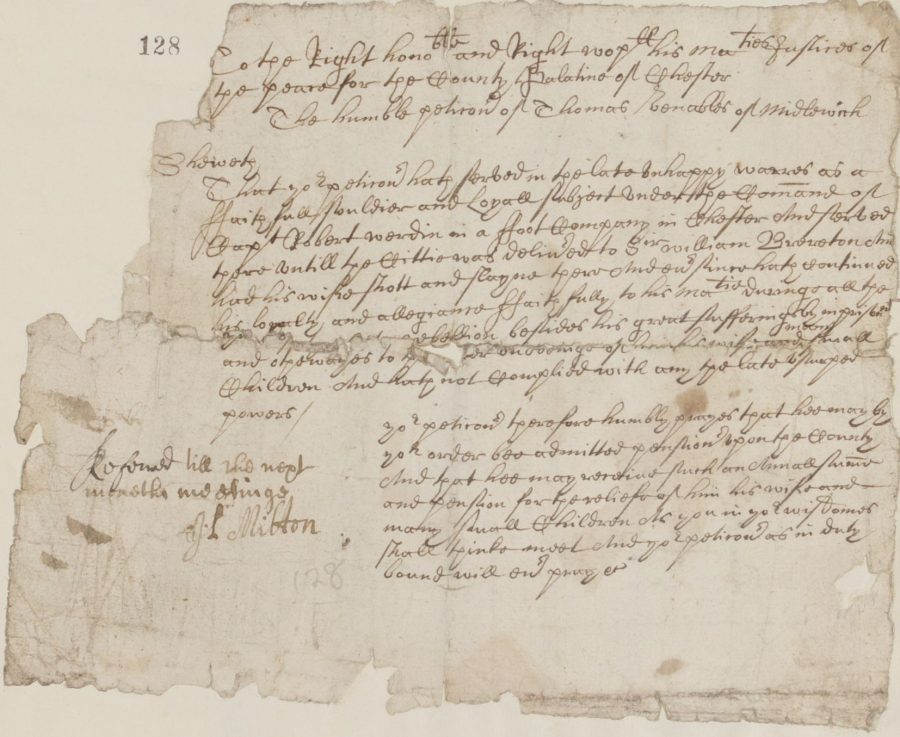 128
To the Right hono ble and Right wopll his Maties Justices of
the peace for the County Palatine of Chester
The humble peticon of Thomas Venables of Midlewich
Sheweth
That yor peticonr hath served in the late unhappy warres as a
ffaithfull souldier and Loyall subject under the Command of
Capt Robert Werdin in a ffoot Company in Chester And served
there untill the Cittie was deliu'ed to Sir William Brereton And
had his wife shott and slayne there And eu' since hath Continued
his loyalty and allegiance ffaithfully to his Matie duringe all the
rebellion besides his great sufferings by imprisonmt
and otherwayes to the undoeinge of him his wife and small
Children And hath not Complied with any the late usurped
powers /
yor peticonr therefore humbly prayes that hee may by
yor order bee admitted pensionr upon the County
And that hee may receive such an Annall summe
and pension for the reliefe of him his wife and
many small Children As you in yor wisdomes
shall thinke meet And yor peticonr as in duty
bound will eu' pray &c
Refered till the next
moneths meetinge
Milton
128